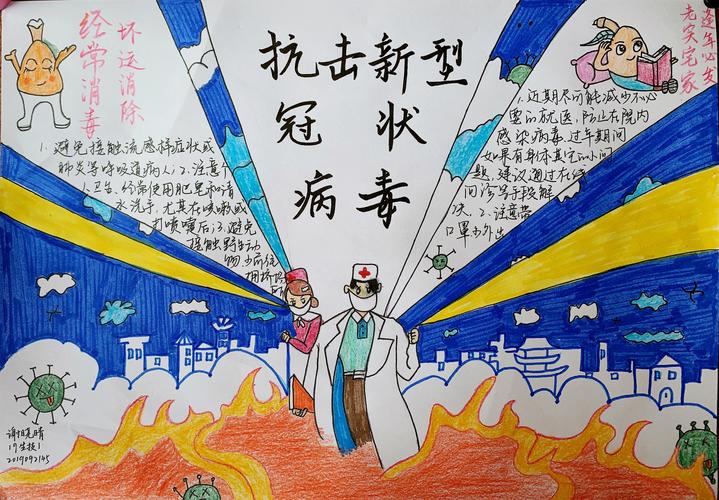 坏运消除
经常消毒
抗击新型
冠状
病毒
逢年必变
老实宅家
1、避免接触流感样症状或
肺炎等呼吸道病人；2、注意个
人卫生、经常使用肥皂和清
水洗手，尤其在咳嗽或
打喷嚏后；3、避免
接触野生动
物
1、近期尽可能减少不必
要的就医，防止在院内
感染病毒，过年期间
如果有身体其它的小问
题，建议通过在线
问诊等手段解
决。2、注意带
口罩少外出
19生技1
2019092145